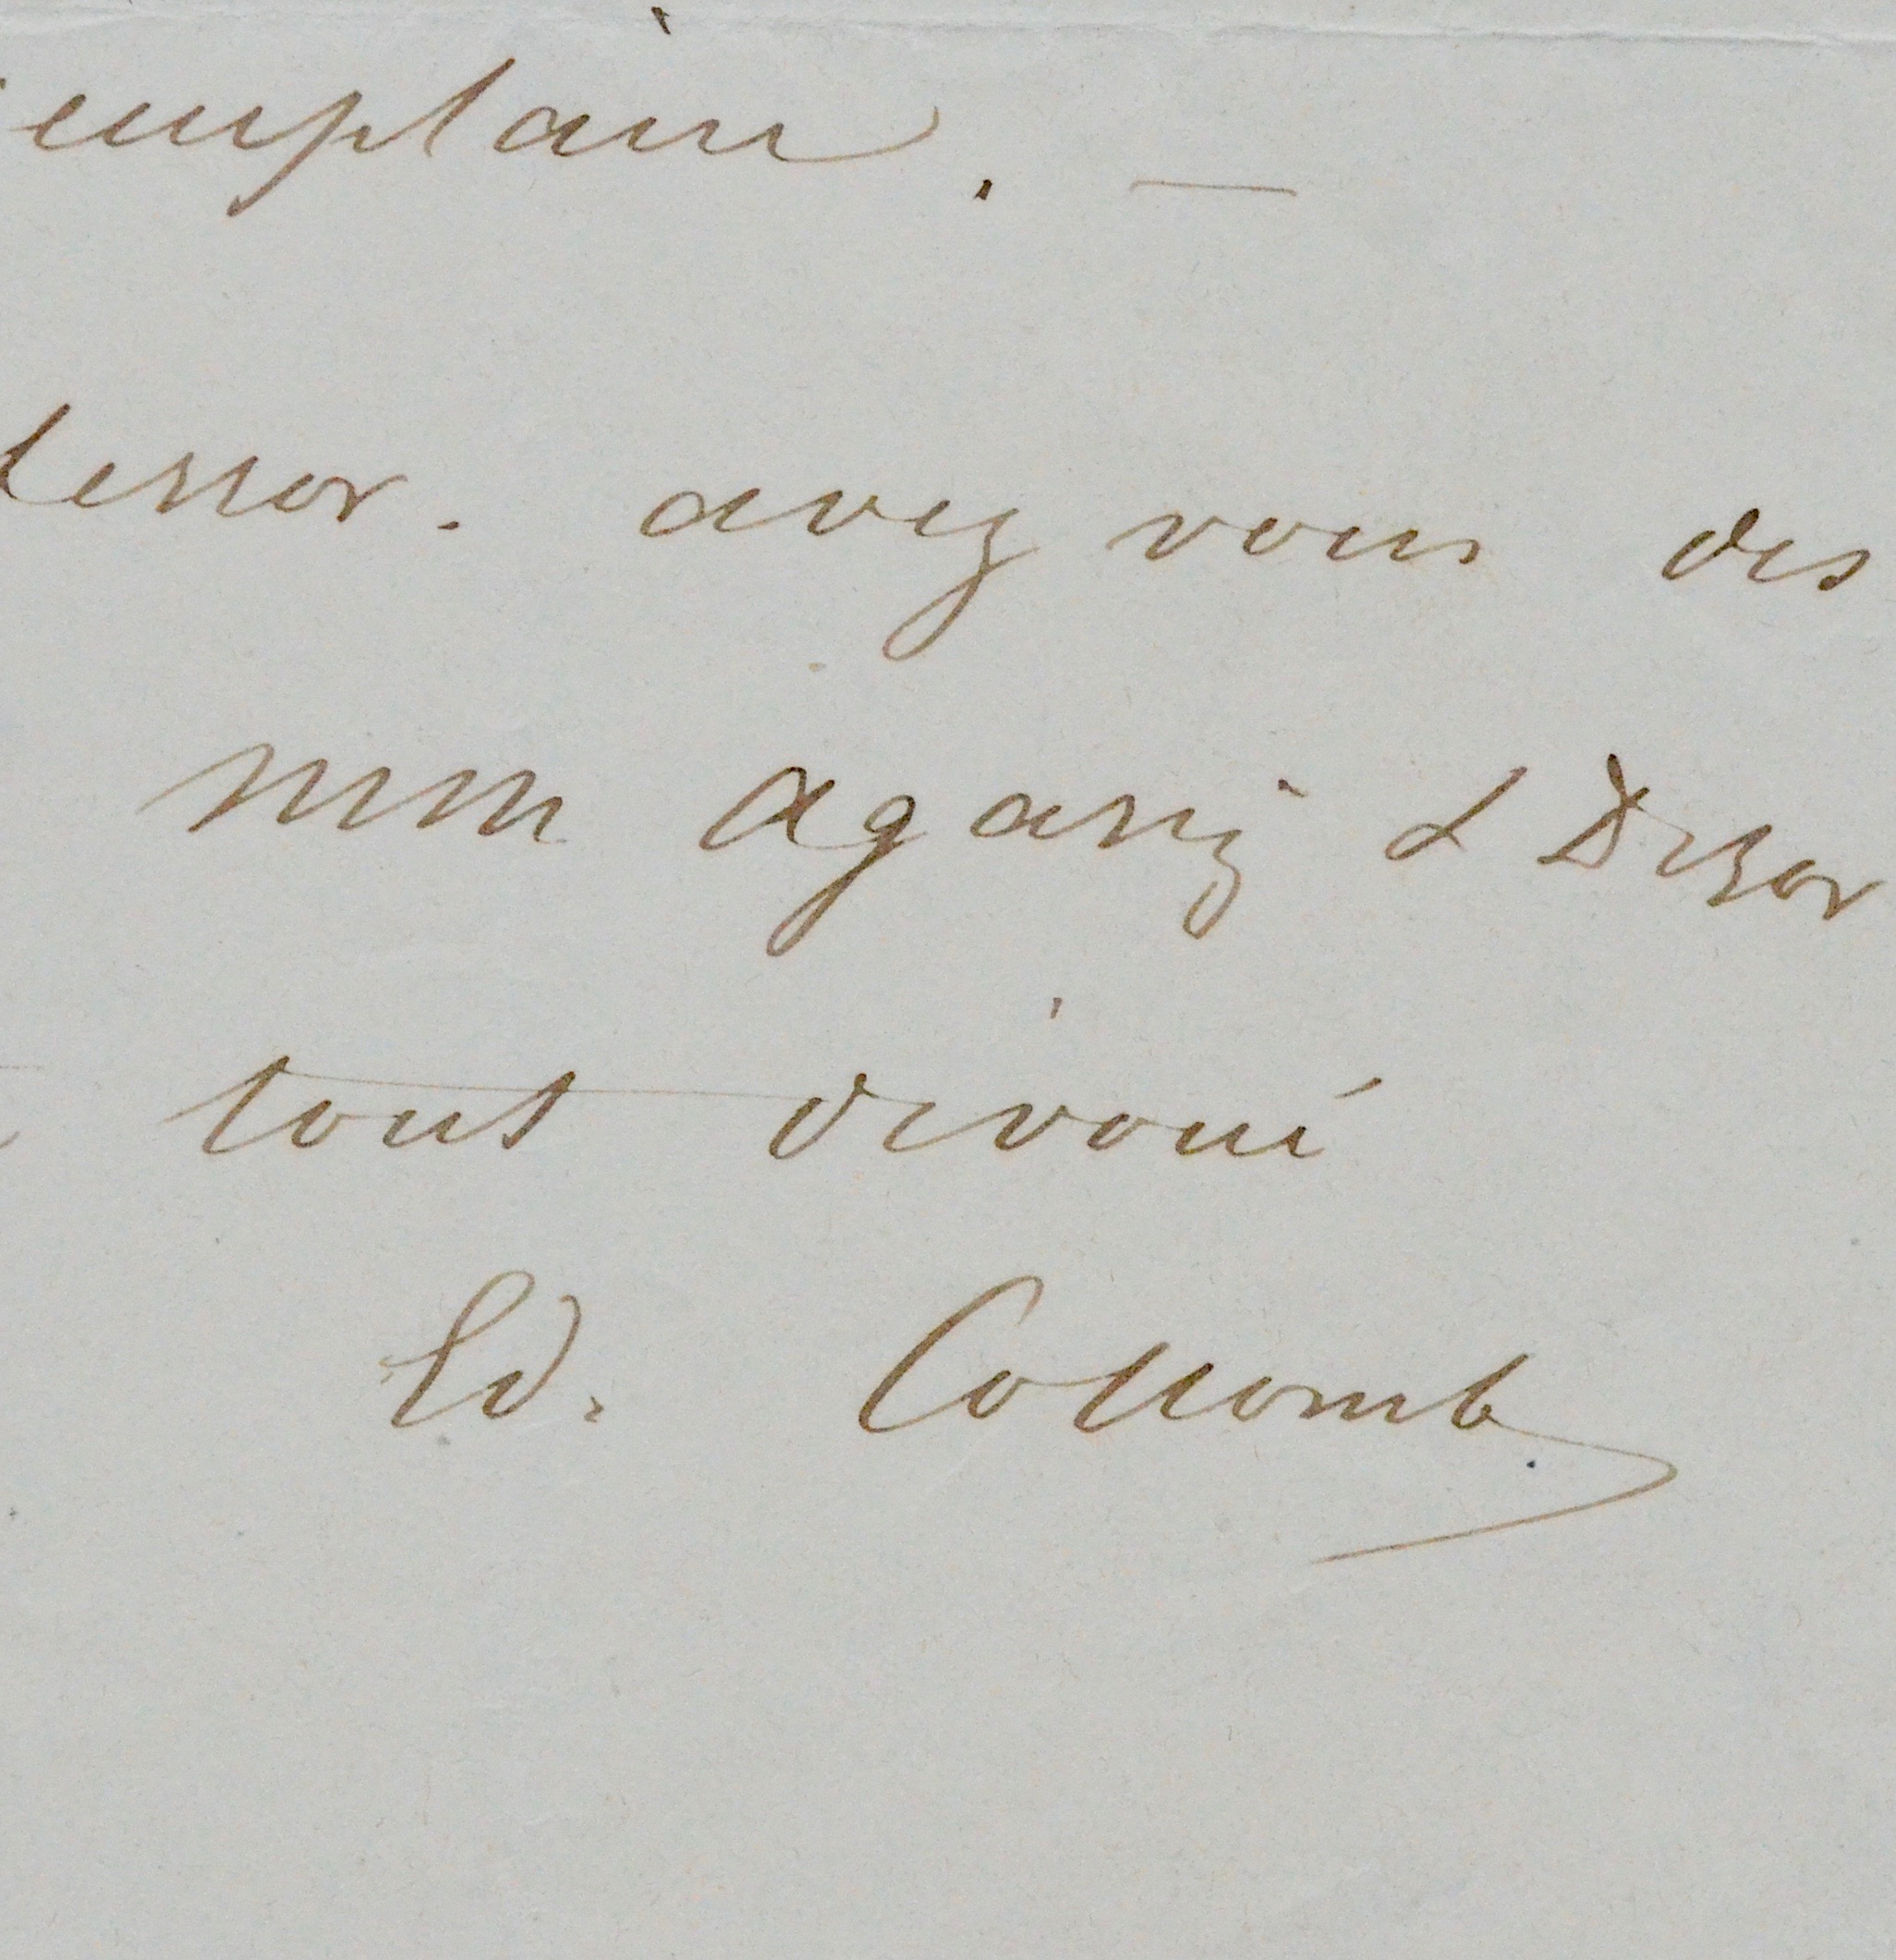 emplaire. —
fessor. avez vous des
mm agassiz & Desor
tout dévoué
Ed. Collomb